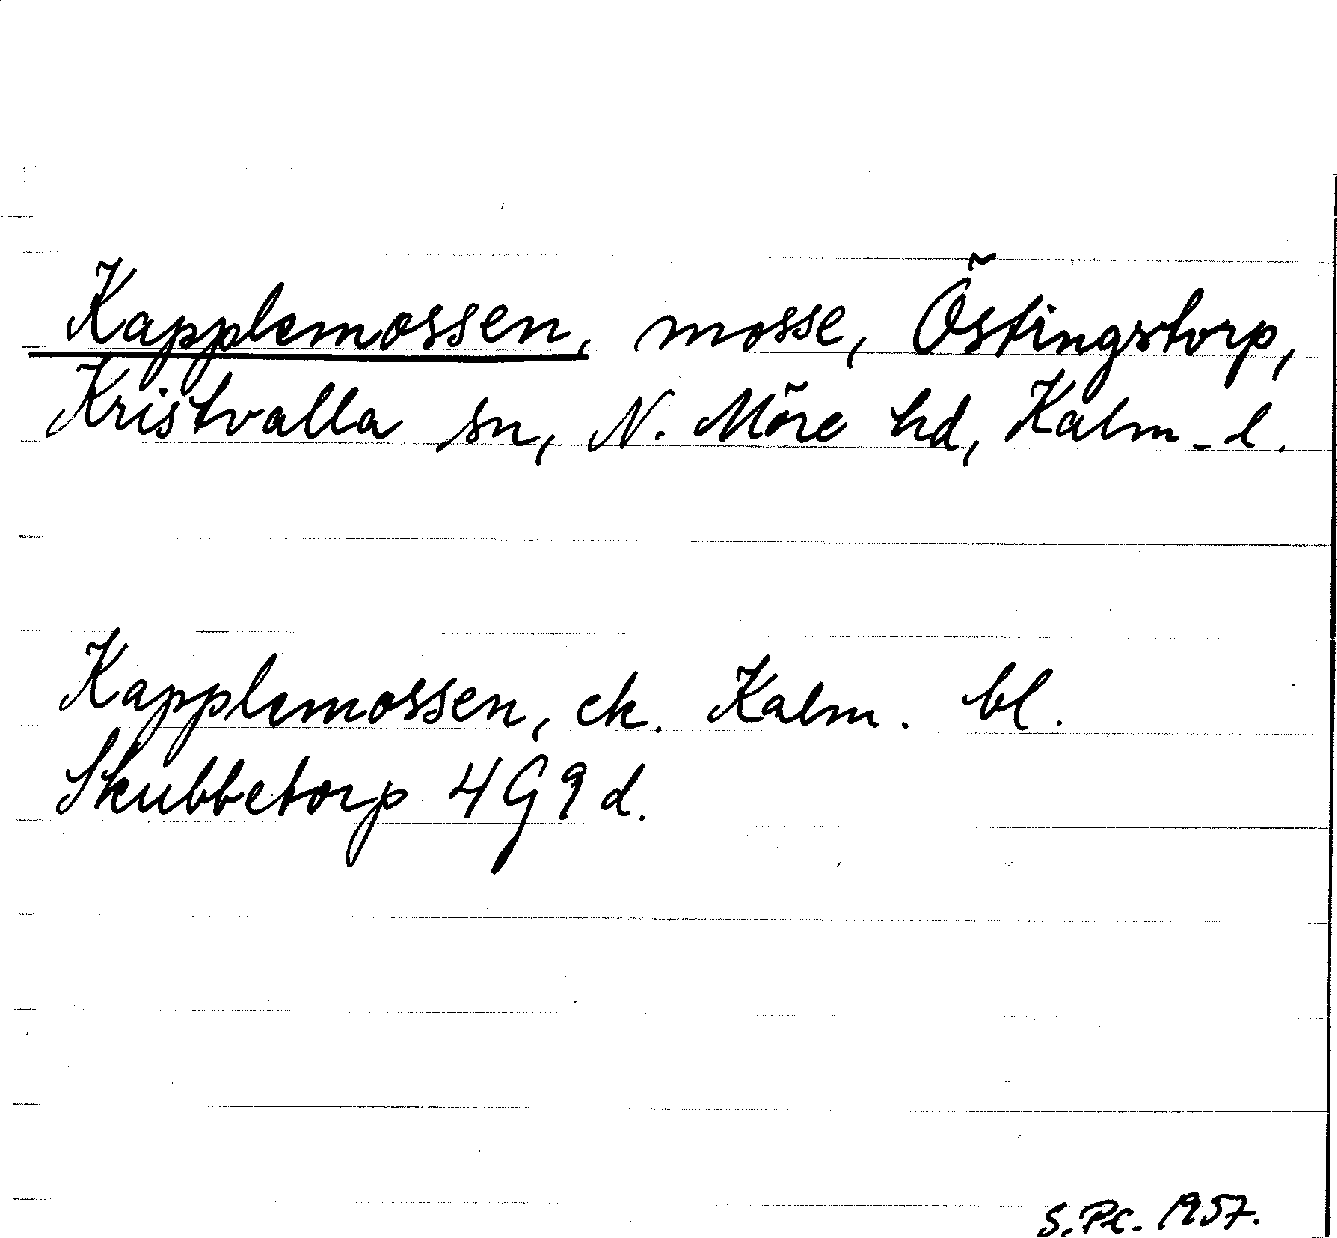 Kapplemossen, mosse, Östingstorp,
Kristvalla sn, N. Möre hd, Kalm. l.
Kapplemossen, ek. Kalm. bl.
Skubbetorp 4G9d.
S.Pc. 1957.